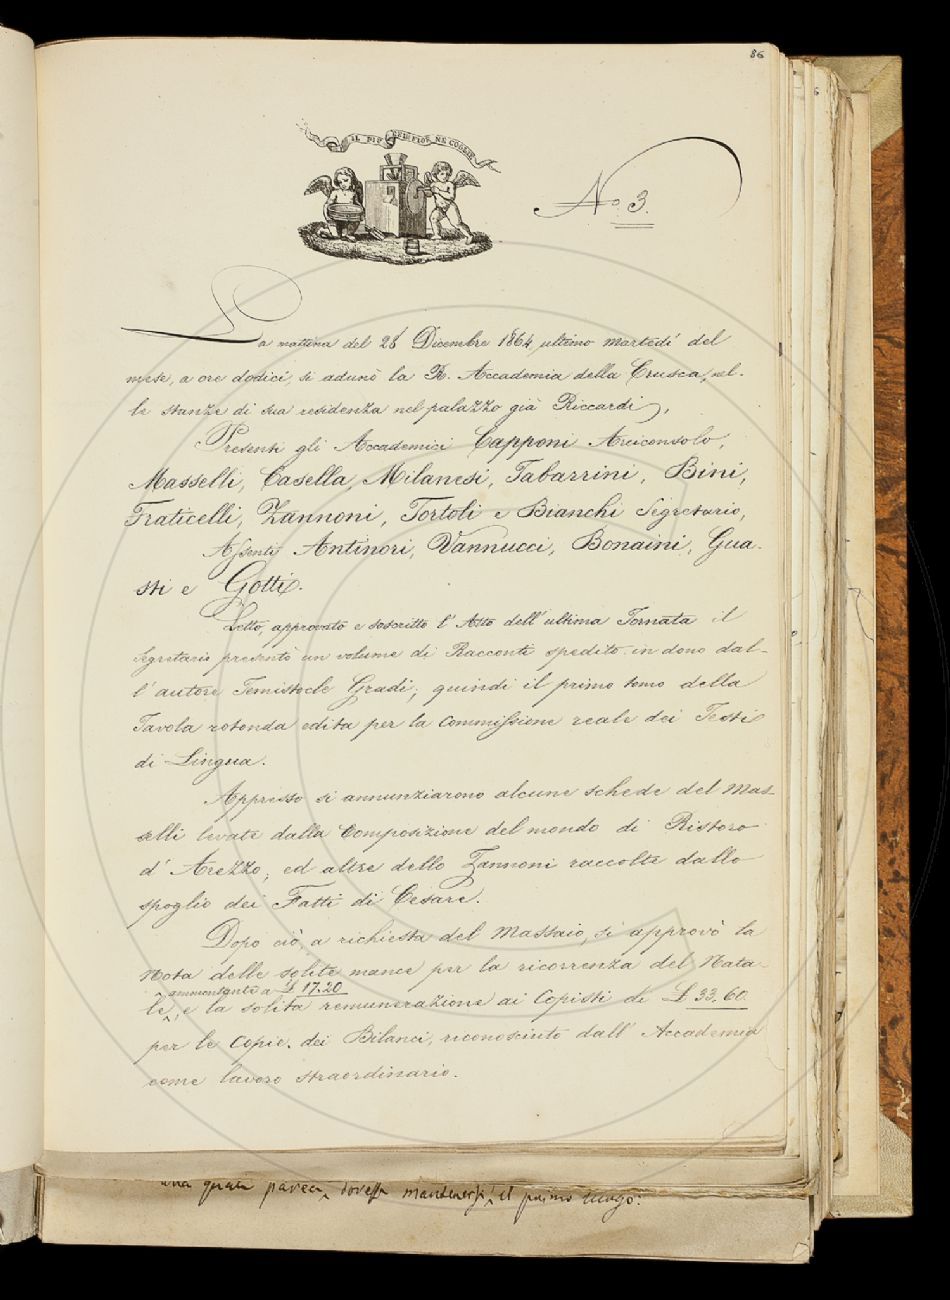 86
IL PIÙ BEL FIOR NE COGLIE
No. 3.
La mattina del 28 Dicembre 1864, ultimo martedì del
mese, a ore dodici, si adunò la R. Accademia della Crusca, nel-
le stanze di sua residenza nel palazzo già Riccardi,
Presenti gli Accademici Capponi Arciconsolo,
Masselli, Casella, Milanesi, Tabarrini, Bini,
Fraticelli, Zannoni, Tortoli e Bianchi Segretario,
Assenti Antinori, Vannucci, Bonaini, Gua-
sti e Gotti.
Letto, approvato e soscritto l'Atto dell'ultima Tornata il
Segretario presentò un volume di Racconti spedito in dono dal-
l'autore Temistocle Gradi; quindi il primo tomo della
Tavola rotonda edita per la Commissione reale dei Testi
di Lingua.
Appresso si annunziarono alcune schede del Mas-
selli levate dalla Composizione del mondo di Ristoro
d'Arezzo, ed altre dello Zannoni raccolte dallo
spoglio dei Fatti di Cesare.
Dopo ciò, a richiesta del Massaio, si approvò la
Nota delle solite mance per la ricorrenza del Nata-
ammontante a £ 17.20
le, e la solita remunerazione ai Copisti di £ 33.60
per le Copie dei Bilanci, riconosciuto dall'Accademia
come lavoro straordinario.
una parea dovesse mantenersi il primo luogo.